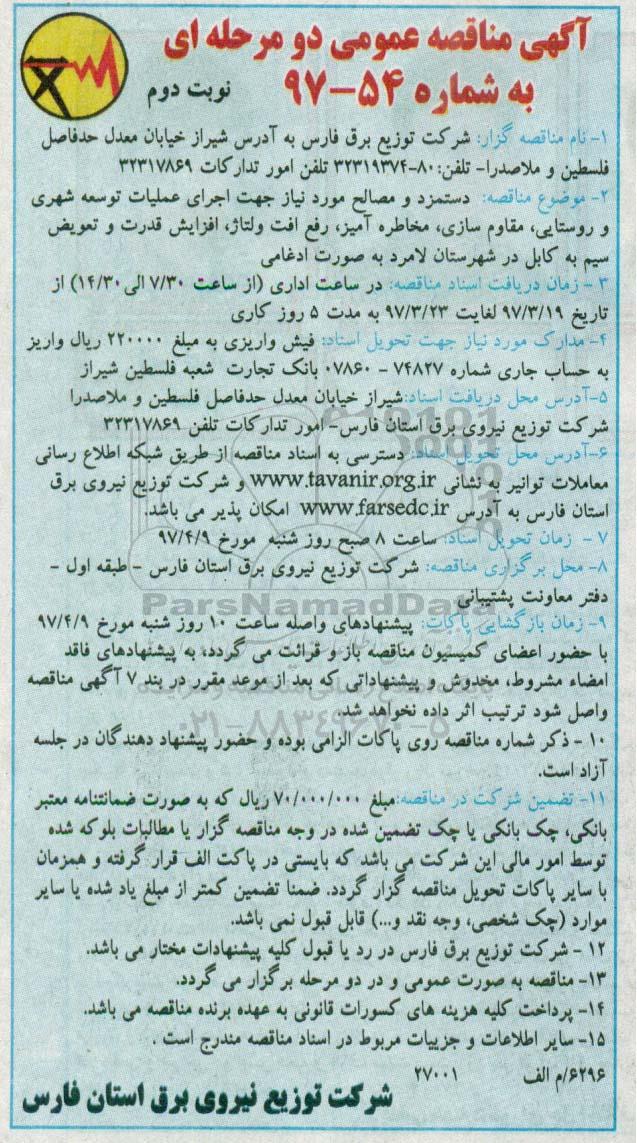 آگهی مناقصه عمومی دو مرحله ای
به شماره ۵۴-۹۷
نوبت دوم
۱- نام مناقصه گزار: شرکت توزیع برق فارس به آدرس شیراز خیابان معدل حدفاصل
فلسطین و ملاصدرا- تلفن:۸۰-۳۲۳۱۹۳۷۴ تلفن امور تدارکات ۳۲۳۱۷۸۶۹
۲- موضوع مناقصه: دستمزد و مصالح مورد نیاز جهت اجرای عملیات توسعه شهری
و روستایی، مقاوم سازی، مخاطره آمیز، رفع افت ولتاژ، افزایش قدرت و تعویض
سیم به کابل در شهرستان لامرد به صورت ادغامی
۳ - زمان دریافت اسناد مناقصه: در ساعت اداری (از ساعت ۷/۳۰ الی ۱۴/۳۰) از
تاریخ ۹۷/۳/۱۹ لغایت ۹۷/۳/۲۳ به مدت ۵ روز کاری
۴- مدارک مورد نیاز جهت تحویل اسناد: فیش واریزی به مبلغ ۲۲۰۰۰۰ ریال واریز
به حساب جاری شماره ۷۴۸۲۷ - ۰۷۸۶۰ بانک تجارت شعبه فلسطین شیراز
۵-آدرس محل دریافت اسناد:شیراز خیابان معدل حدفاصل فلسطین و ملاصدرا
شرکت توزیع نیروی برق استان فارس- امور تدارکات تلفن ۳۲۳۱۷۸۶۹
۶-آدرس محل تحویل اسناد: دسترسی به اسناد مناقصه از طریق شبکه اطلاع رسانی
معاملات توانیر به نشانی www.tavanir.org.ir و شرکت توزیع نیروی برق
استان فارس به آدرس www.farsedc.ir امکان پذیر می باشد.
۷ - زمان تحویل اسناد: ساعت ۸ صبح روز شنبه مورخ ۹۷/۴/۹
۸- محل برگزاری مناقصه: شرکت توزیع نیروی برق استان فارس - طبقه اول -
دفتر معاونت پشتیبانی
ParsNamadData
۹- زمان بازگشایی پاکات: پیشنهادهای واصله ساعت ۱۰ روز شنبه مورخ ۹۷/۴/۹
با حضور اعضای کمیسیون مناقصه باز و قرائت می گردد، به پیشنهادهای فاقد
امضاء مشروط، مخدوش و پیشنهاداتی که بعد از موعد مقرر در بند ۷ آگهی مناقصه
واصل شود ترتیب اثر داده نخواهد شد.
۰۲۱-۸۸۳۴۹۶۷۰-۵
۱۰ - ذکر شماره مناقصه روی پاکات الزامی بوده و حضور پیشنهاد دهندگان در جلسه
آزاد است.
۱۱- تضمین شرکت در مناقصه:مبلغ ۷۰/۰۰۰/۰۰۰ ریال که به صورت ضمانتنامه معتبر
بانکی، چک بانکی یا چک تضمین شده در وجه مناقصه گزار یا مطالبات بلوکه شده
توسط امور مالی این شرکت می باشد که بایستی در پاکت الف قرار گرفته و همزمان
با سایر پاکات تحویل مناقصه گزار گردد. ضمنا تضمین کمتر از مبلغ یاد شده یا سایر
موارد (چک شخصی، وجه نقد و...) قابل قبول نمی باشد.
۱۲ - شرکت توزیع برق فارس در رد یا قبول کلیه پیشنهادات مختار می باشد.
۱۳- مناقصه به صورت عمومی و در دو مرحله برگزار می گردد.
۱۴- پرداخت کلیه هزینه های کسورات قانونی به عهده برنده مناقصه می باشد.
۱۵- سایر اطلاعات و جزییات مربوط در اسناد مناقصه مندرج است .
۶۲۹۶/م الف ۲۷۰۰۱
شرکت توزیع نیروی برق استان فارس